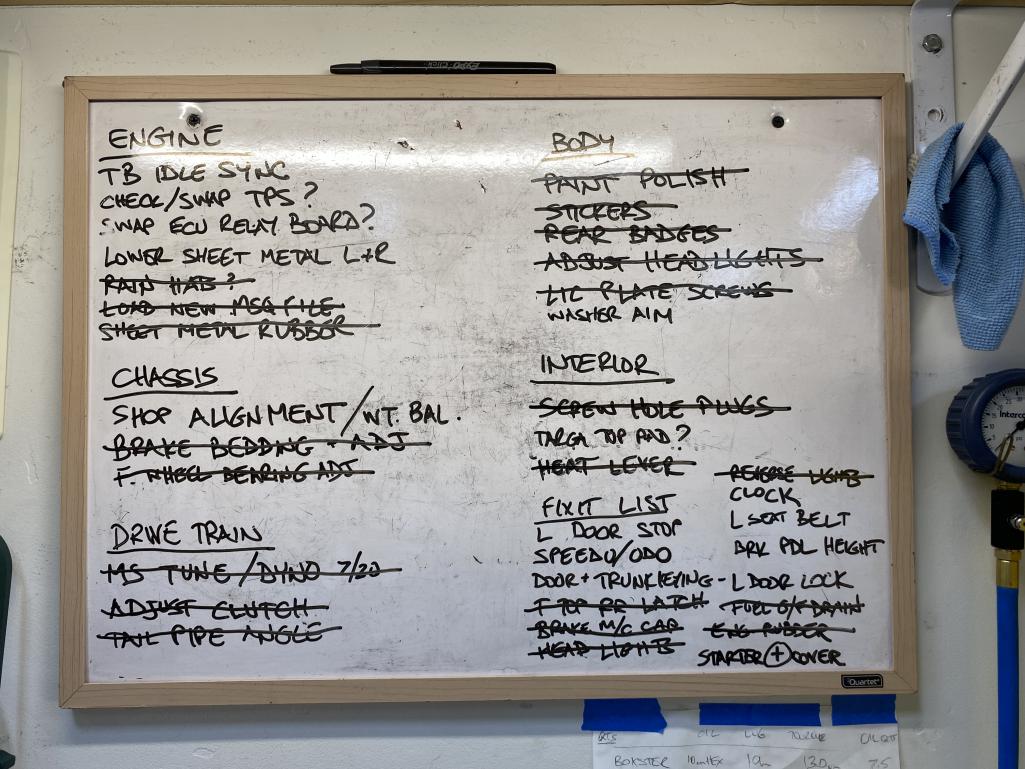 EXPO Click
ENGINE
TB IDLE SYNC
CHECK/SWAP TPS?
SWAP ECU RELAY BOARD?
LOWER SHEET METAL L+R
RAIN HATS?
LOAD NEW MSQ FILE
SHEET METAL RUBBER
CHASSIS
SHOP ALIGNMENT/WT. BAL.
BRAKE BEDDING + ADJ
F. WHEEL BEARING ADJ
DRIVE TRAIN
MS TUNE/DYNO 7/20
ADJUST CLUTCH
TAIL PIPE ANGLE
BODY
PAINT POLISH
STICKERS
REAR BADGES
ADJUST HEADLIGHTS
LIC PLATE SCREWS
WASHER AIM
INTERIOR
SCREW HOLE PLUGS
TARGA TOP PAD?
HEAT LEVER
FIXIT LIST
L DOOR STOP
SPEEDO/ODO
DOOR + TRUNK KEYING - L DOOR LOCK
T TOP RR LATCH
BRAKE M/C CAP
HEAD LIGHTS
REVERSE LIGHTS
CLOCK
L SEAT BELT
BRK PDL HEIGHT
FUEL O/F DRAIN
ENG RUBBER
STARTER + COVER
Quartet
OIL LUG TORQUE
BOXSTER 10mm HEX 19m 130 7.5